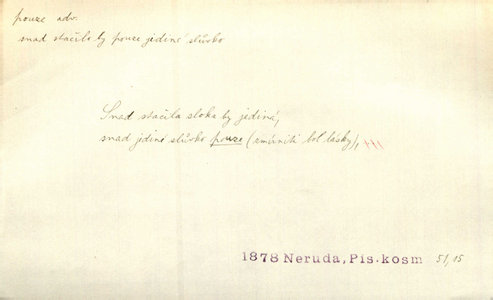 pouze adv.
snad stačilo by pouze jediné slůvko
Snad stačila sloka by jediná,
snad jediné slůvko pouze (zmírniti bol lásky),
1878 Neruda, Pis. kosm 51,15